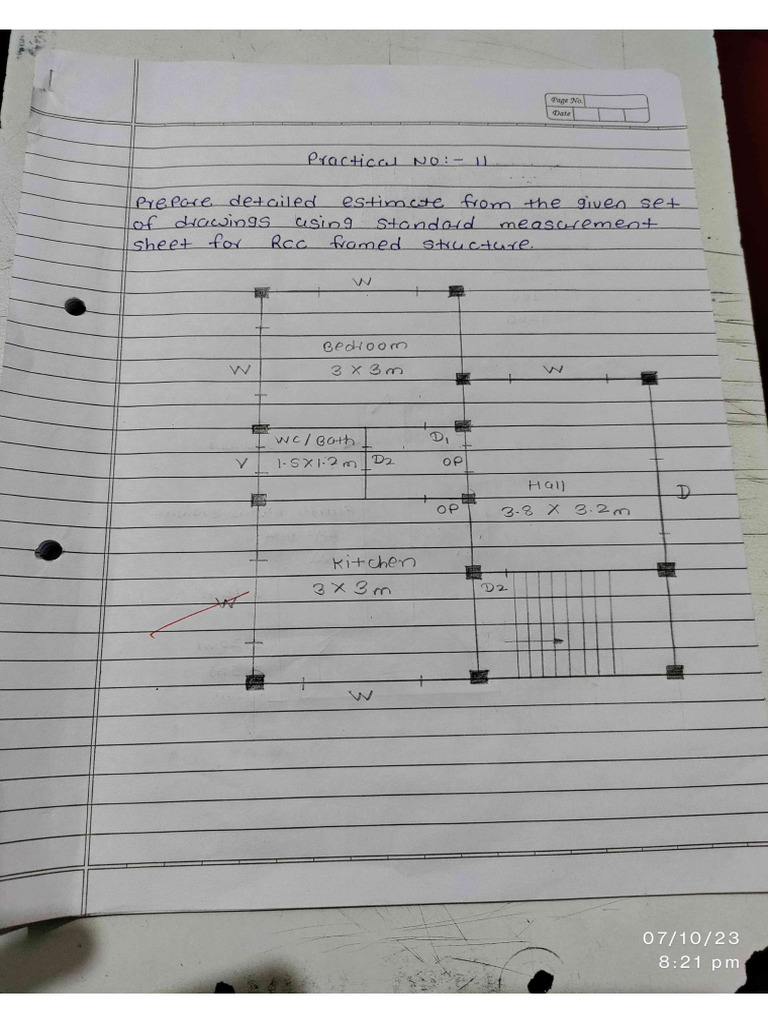 Page No.
Date
Practical No:- 11
Prepare detailed estimate from the given set
of drawings using standard measurement
sheet for Rcc framed structure.
W
Bedroom
W
3 x 3m
W
WC/Bath
D1
V
1.5x1.2m
D2
OP
Hall
D
OP
3.8 x 3.2m
Kitchen
3 x 3m
D2
W
W
07/10/23
8:21 pm